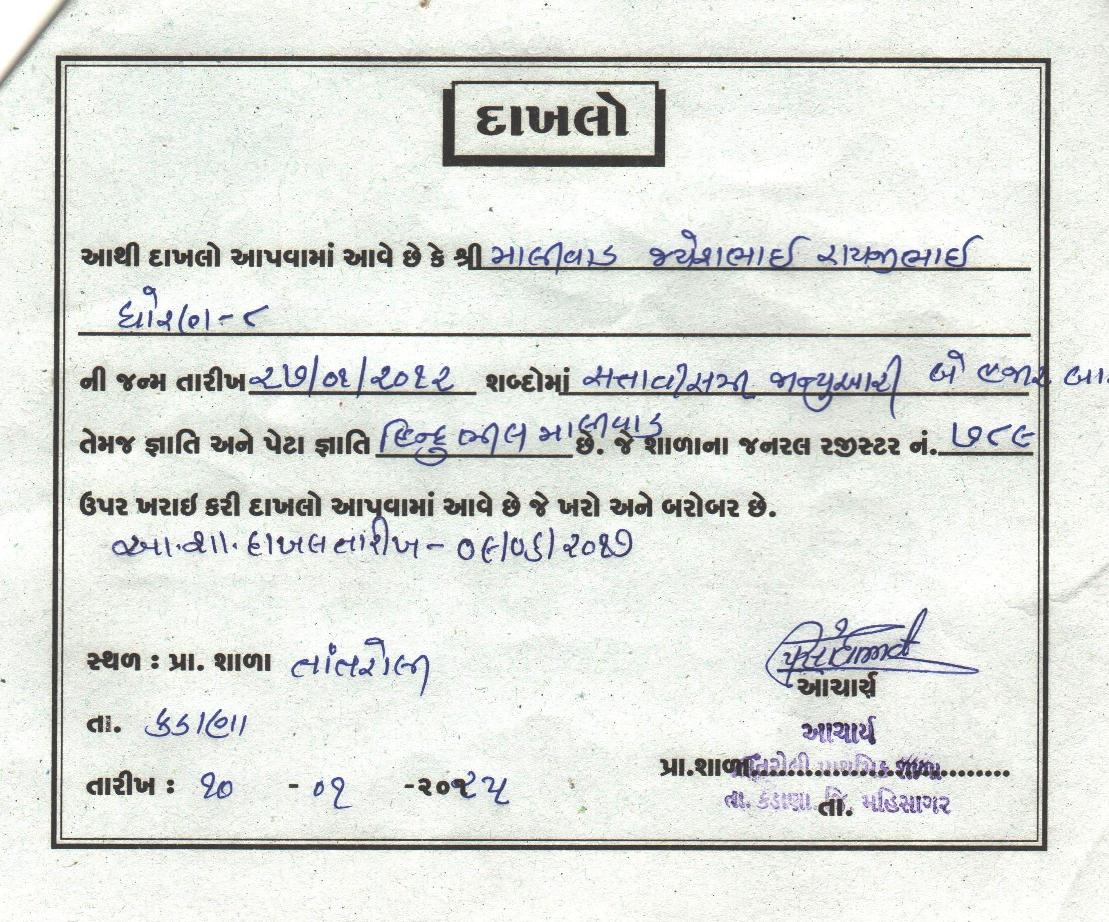 દાખલો
આથી દાખલો આપવામાં આવે છે કે શ્રી માલીવાડ જયેશભાઈ રાયજીભાઈ
ધોરણ - ૮
ની જન્મ તારીખ ૨૭/૦૧/૨૦૧૨ શબ્દોમાં સત્તાવીસમી જાન્યુઆરી બે હજાર બાર
તેમજ જ્ઞાતિ અને પેટા જ્ઞાતિ હિન્દુ ભીલ માલીવાડ છે. જે શાળાના જનરલ રજીસ્ટર નં. ૭૮૯
ઉપર ખરાઇ કરી દાખલો આપવામાં આવે છે જે ખરો અને બરોબર છે.
આ.શા. દાખલ તારીખ - ૦૯/૦૬/૨૦૧૭
સ્થળ : પ્રા. શાળા તાંતરોલી
આચાર્ય
તા. કડાણા
આચાર્ય
પ્રા.શાળા તાંતરોલી પ્રાથમિક શાળા
તારીખ : ૧૦ - ૦૧ - ૨૦૨૫
તા. કડાણા જિ. મહિસાગર
તા.